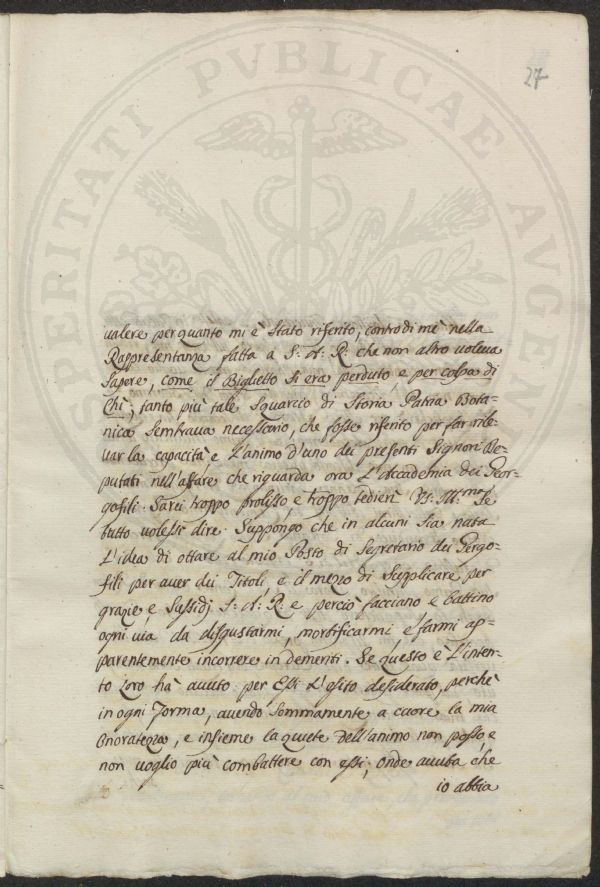 27
valere per quanto mi è stato riferito, contro di mè nella
Rappresentanza fatta a S: A: R: che non altro voleva
sapere, come il Biglietto si era perduto, e per colpa di
Chi; tanto più tale squarcio di Storia Patria Bota=
nica sembrava necessario, che fosse riferito per far rile=
var la capacità e l'animo d'uno dei presenti Signori De=
putati nell'affare che riguarda ora L'Accademia dei Geor=
gofili. Sarei troppo prolisso, e troppo tedierei VS: Ill:ma se
tutto volessi dire. Suppongo che in alcuni sia nata
L'idea di ottare al mio Posto di Segretario dei Gergo=
fili per aver dei Titoli e il mezzo di Supplicare per
grazie, e Sussidj S: A: R: e perciò facciano e battino
ogni via da disgustarmi, mortificarmi e farmi ap=
parentemente incorrere in demeriti. Se questo è L'inten=
to loro hà avuto per Essi L'esito desiderato, perchè
in ogni forma, avendo sommamente a cuore la mia
Onoratezza, e insieme la quiete dell'animo non posso, e
non voglio più combattere con essi; onde avuta che
io abbia
SPERITATI PVBLICAE AVGEN